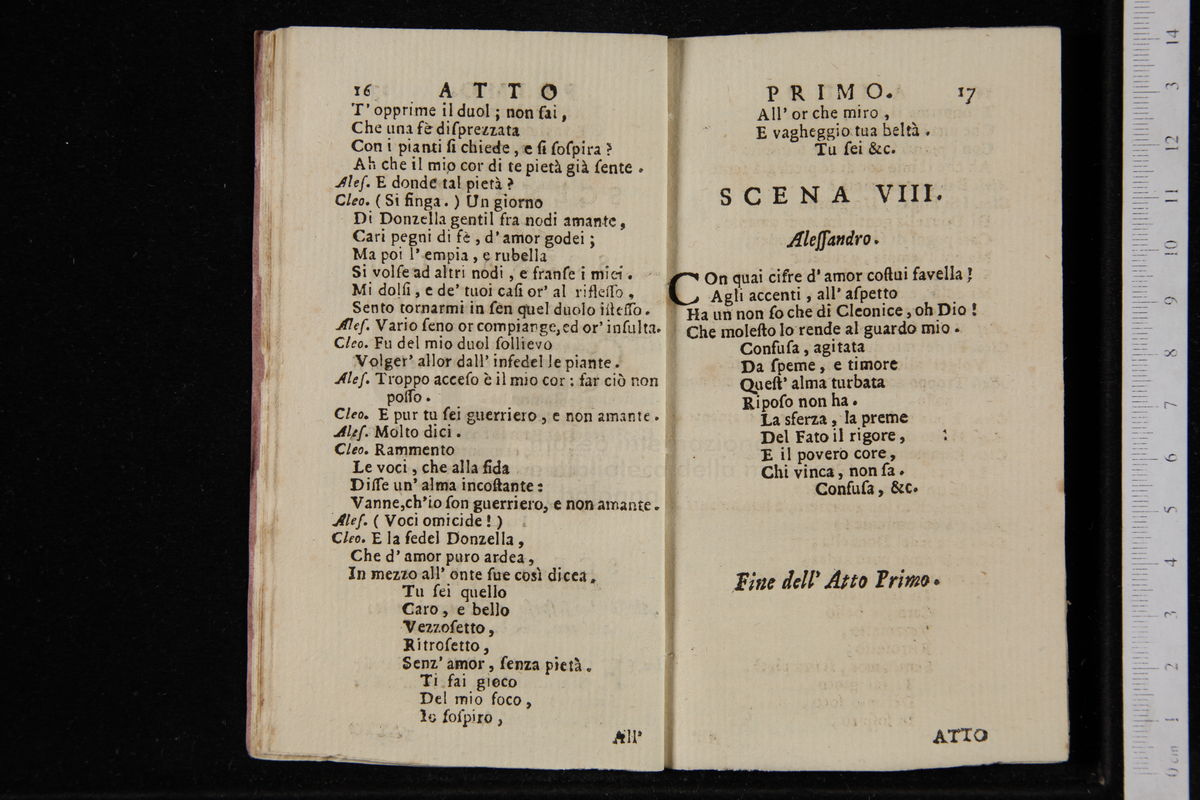 16 ATTO
T' opprime il duol ; non ſai ,
Che una fè diſprezzata
Con i pianti ſi chiede , e ſi ſoſpira ?
Ah che il mio cor di te pietà già ſente .
Aleſ. E donde tal pietà ?
Cleo. ( Si finga . ) Un giorno
Di Donzella gentil fra nodi amante ,
Cari pegni di fè , d' amor godei ;
Ma poi l' empia , e rubella
Si volſe ad altri nodi , e franſe i miei .
Mi dolſi , e de' tuoi caſi or' al rifleſſo ,
Sento tornarmi in ſen quel duolo iſteſſo .
Aleſ. Vario ſeno or compiange, ed or' inſulta.
Cleo. Fu del mio duol ſollievo
Volger' allor dall' infedel le piante .
Aleſ. Troppo acceſo è il mio cor : far ciò non
poſſo .
Cleo. E pur tu ſei guerriero , e non amante .
Aleſ. Molto dici .
Cleo. Rammento
Le voci , che alla fida
Diſſe un' alma incoſtante :
Vanne, ch'io ſon guerriero, e non amante .
Aleſ. ( Voci omicide ! )
Cleo. E la fedel Donzella ,
Che d' amor puro ardea ,
In mezzo all' onte ſue così dicea .
Tu ſei quello
Caro , e bello
Vezzoſetto ,
Ritroſetto ,
Senz' amor , ſenza pietà .
Ti fai gioco
Del mio foco ,
Io ſoſpiro ,
All'
PRIMO. 17
All' or che miro ,
E vagheggio tua beltà .
Tu ſei &c.
SCENA VIII.
Aleſſandro .
COn quai cifre d' amor coſtui favella !
Agli accenti , all' aſpetto
Ha un non ſo che di Cleonice , oh Dio !
Che moleſto lo rende al guardo mio .
Confuſa , agitata
Da ſpeme , e timore
Queſt' alma turbata
Ripoſo non ha .
La sferza , la preme
Del Fato il rigore ,
E il povero core ,
Chi vinca , non ſa .
Confuſa , &c.
Fine dell' Atto Primo .
ATTO
0 cm 1 2 3 4 5 6 7 8 9 10 11 12 13 14